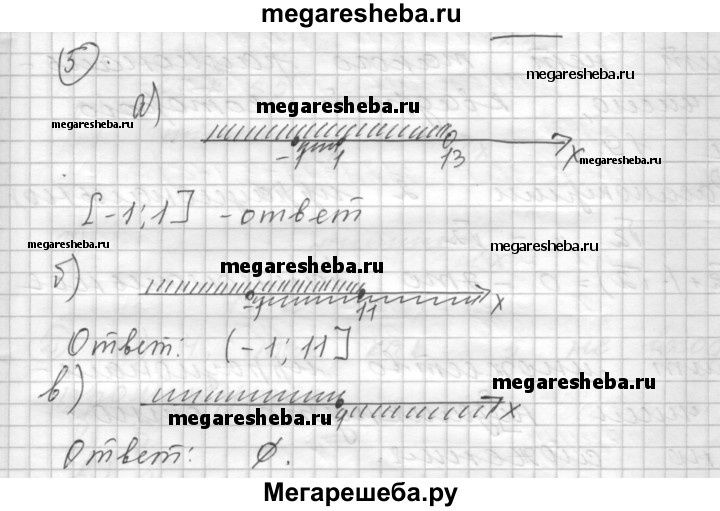 megaresheba.ru
5.
megaresheba.ru
а)
megaresheba.ru
megaresheba.ru
megaresheba.ru
-1 1 13 x
[-1; 1] - ответ
megaresheba.ru
megaresheba.ru
б)
megaresheba.ru
-1 11 x
Ответ: (-1; 11]
в)
megaresheba.ru
megaresheba.ru
9 x
Ответ: Ø.
Мегарешеба.ру